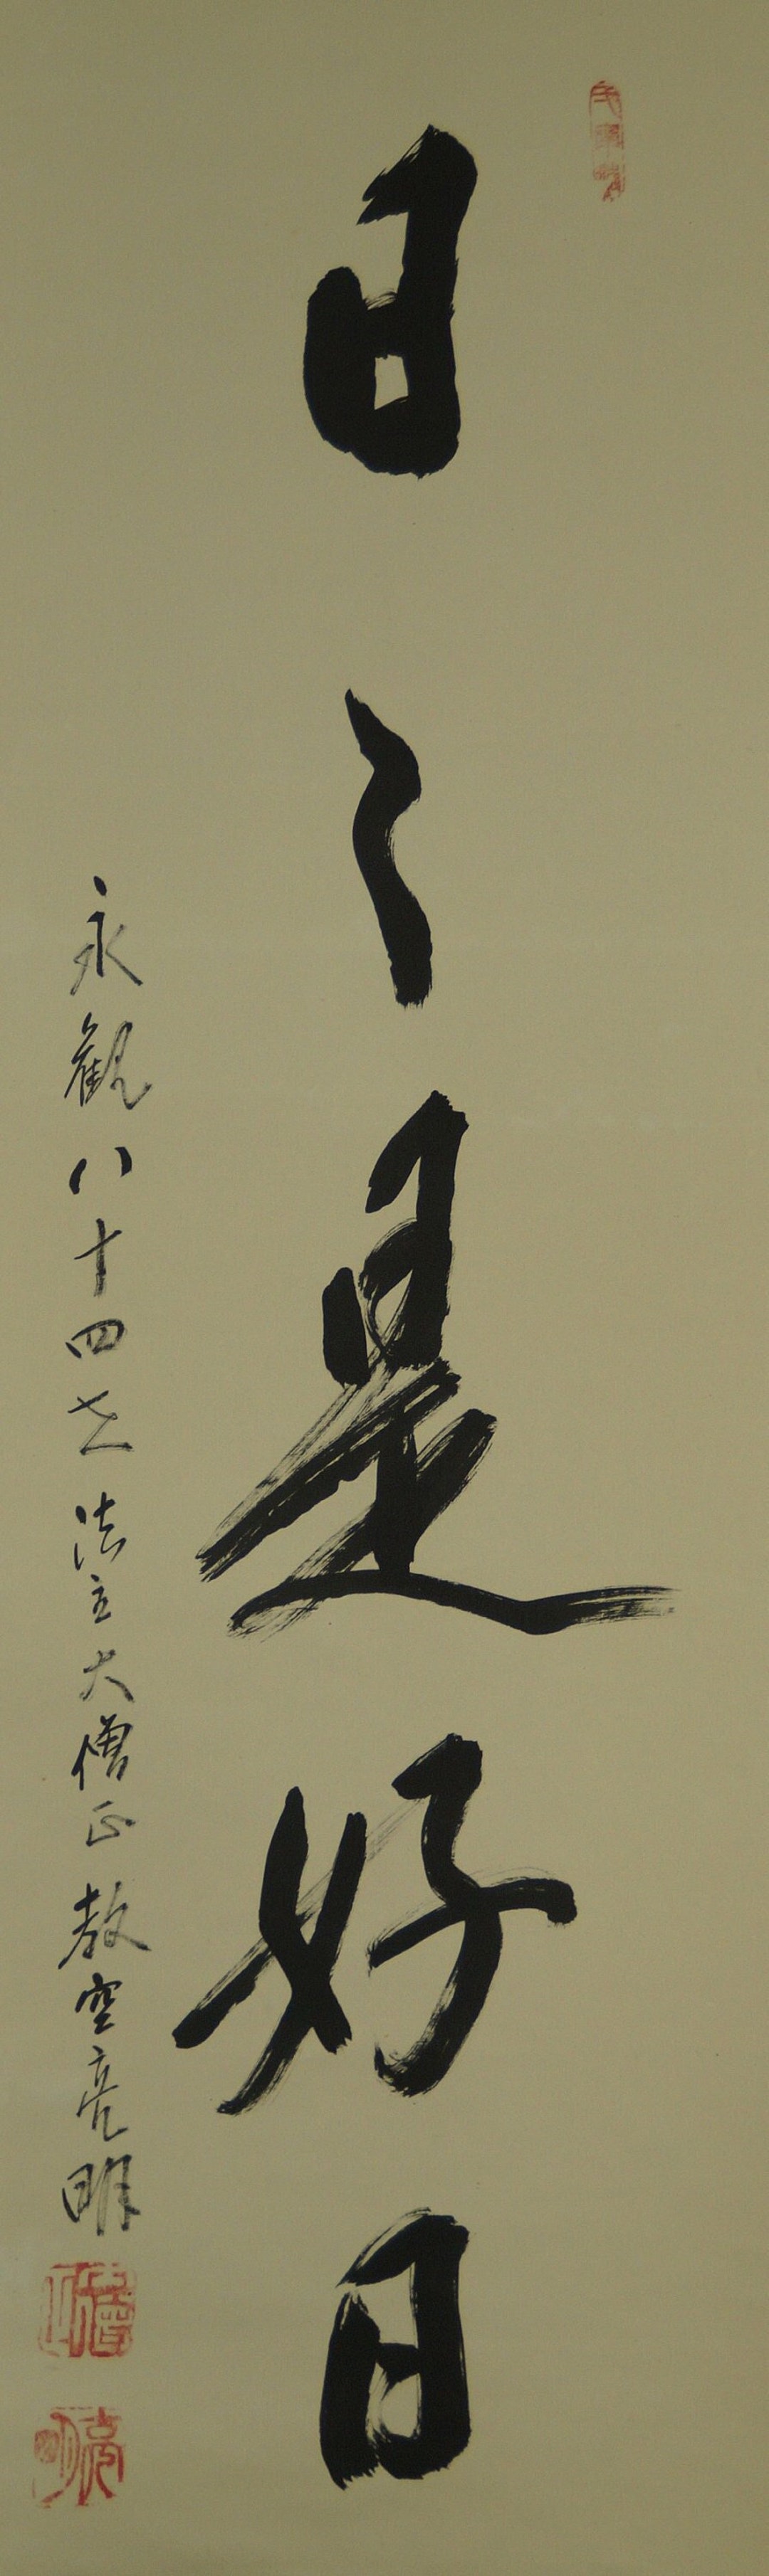 日々是好日
永観八十四世 法主大僧正 教空亮明